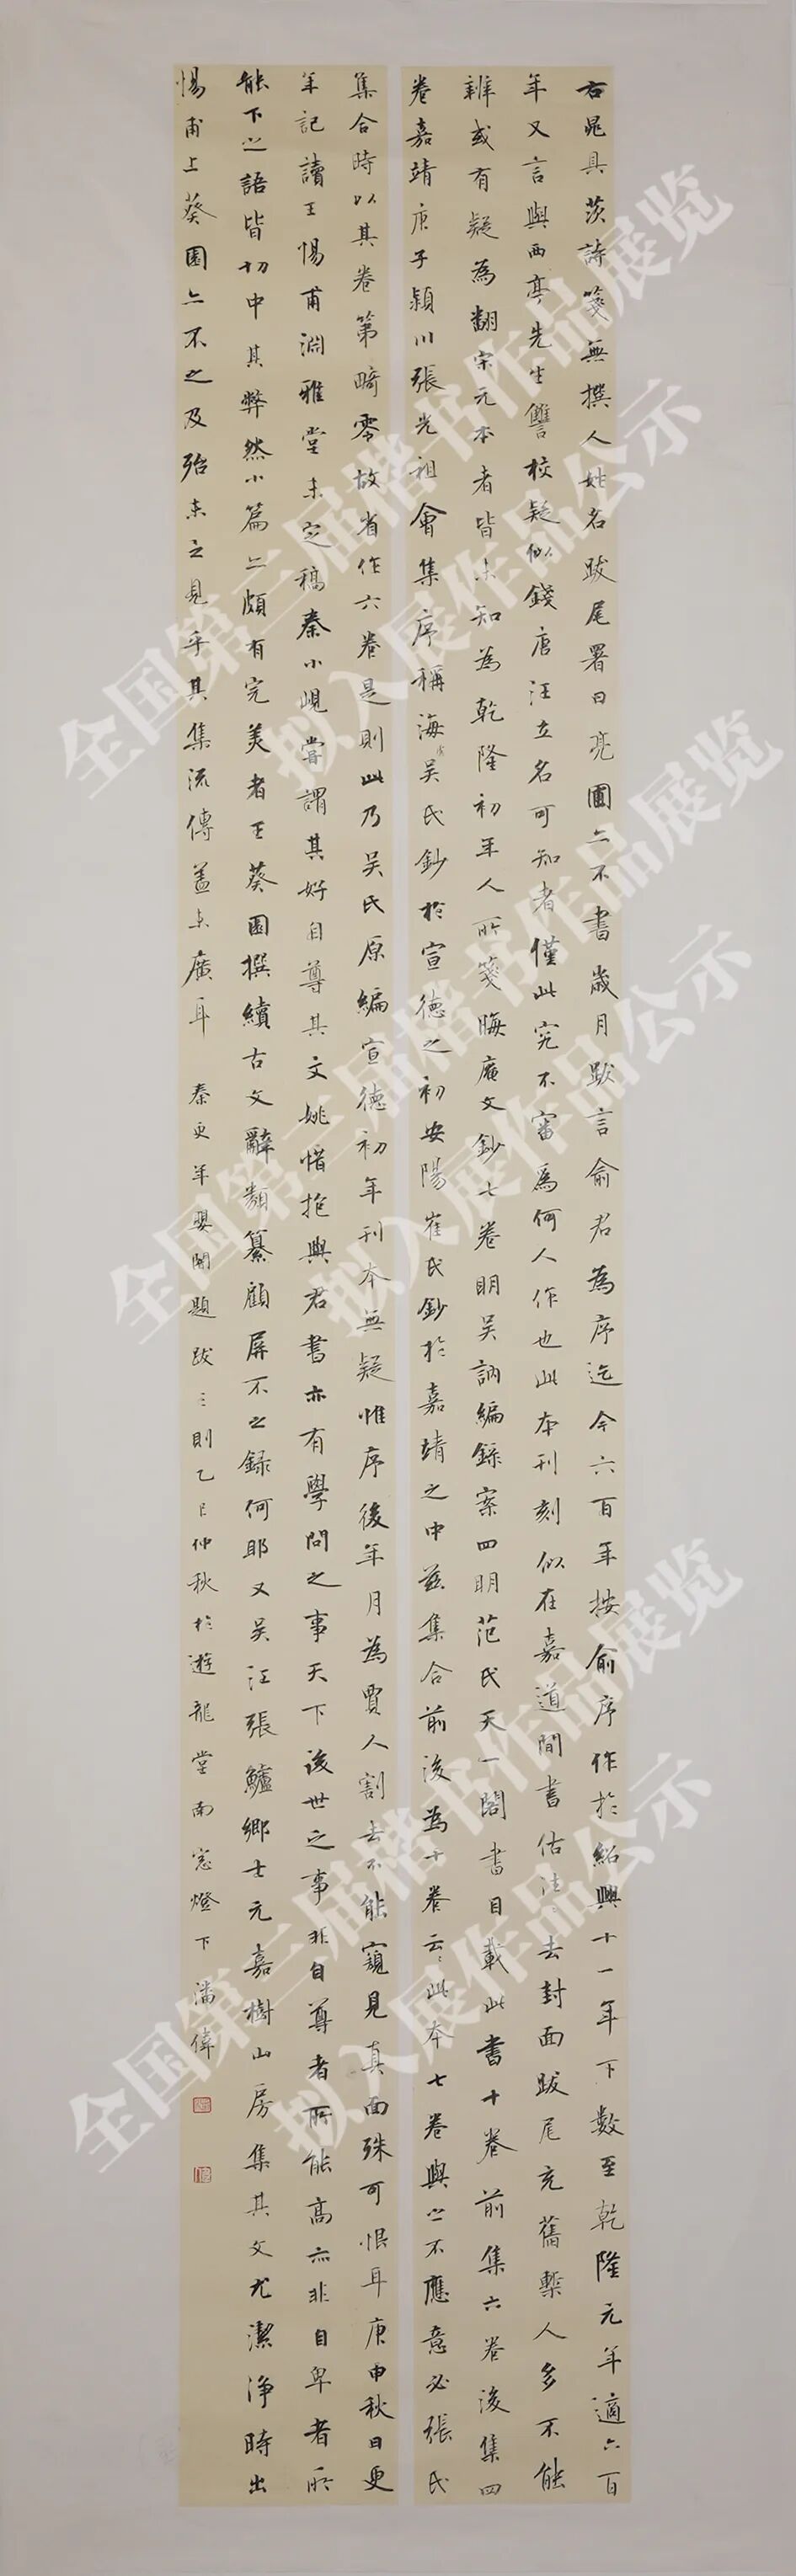 右晁具茨詩箋無撰人姓名跋尾署曰亮圃亦不書歲月跋言俞君為序迄今六百年按俞序作於紹興十一年下數至乾隆元年適六百
年又言與西亭先生讐校疑似錢唐汪立名可知者僅此究不審為何人作也此本刊刻似在嘉道間書估法去封面跋尾充舊槧人多不能
辨或有疑為翻宋元本者皆未知為乾隆初年人所箋晦庵文鈔七卷明吳訥編錄案四明范氏天一閣書目載此書十卷前集六卷後集四
卷嘉靖庚子潁川張光祖會集序稱海虞吳氏鈔於宣德之初安陽崔氏鈔於嘉靖之中茲集合前後為十卷云云此本七卷與之不應意必張氏
集合時以其卷第畸零故省作六卷是則此乃吳氏原編宣德初年刊本無疑惟序後年月為賈人割去不能窺見真面殊可恨耳庚申秋日更
年記讀王惕甫淵雅堂未定稿秦小峴嘗謂其好自尊其文姚惜抱與君書亦有學問之事天下後世之事非自尊者所能高亦非自卑者所
能下之語皆切中其弊然小篇亦頗有完美者王葵園撰續古文辭類纂顧屏不之錄何耶又吳江張鱸鄉士元嘉樹山房集其文尤潔淨時出
惕甫上葵園亦不之及殆未之見乎其集流傳蓋未廣耳 秦更年嬰闇題跋三則乙巳仲秋於遊龍堂南窓燈下潘偉
全国第三届楷书作品展览
拟入展作品公示
全国第三届楷书作品展览
拟入展作品公示
全国第三届楷书作品展览
拟入展作品公示